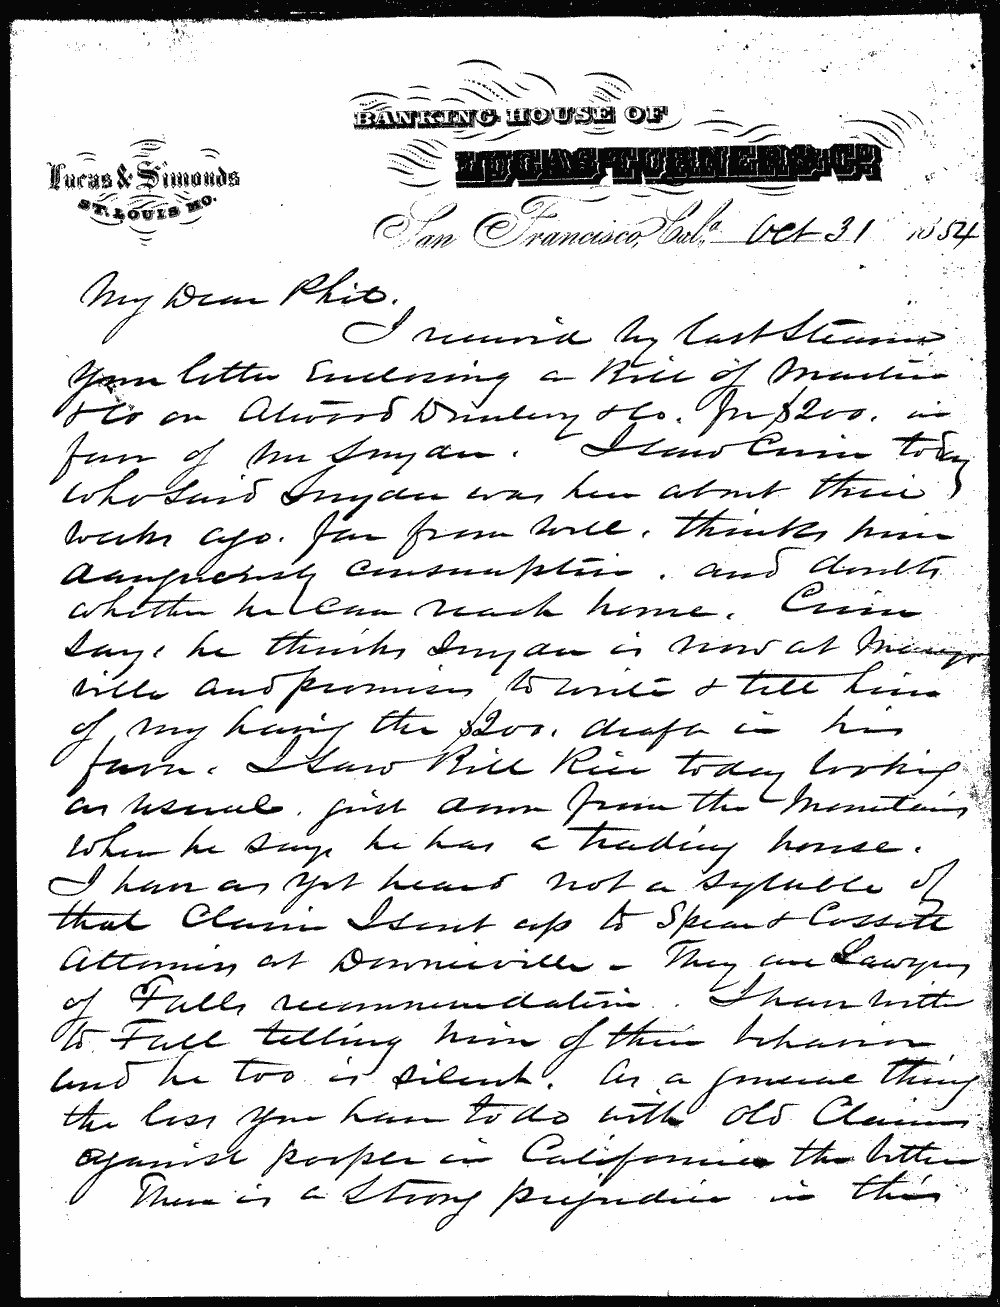 BANKING HOUSE OF
LUCAS TURNER & CO.
Lucas & Simonds
ST. LOUIS MO.
San Francisco, Cal.ª Oct 31 1854
My Dear Phil.
I received by last Steamer
your letter Enclosing a Bill of
& Co on & Co. for $200. in
favor of Mr Snyder. I saw today
who said Snyder was here about three
weeks ago. far from well. thinks him
dangerously consumptive. and doubts
whether he can reach home.
says he thinks Snyder is now at Marys-
ville and promises to write & tell him
of my having the $200. draft in his
favor. I saw Bill Rice today looking
as usual. just down from the Mountains
where he says he has a trading house.
I have as yet heard not a syllable of
that Claim I sent up to Spear & Cossitt
Attorneys at Downieville - They are Lawyers
of Falls recommendation. I have written
to Fall telling him of their behavior
and he too is silent. As a general thing
the less you have to do with old Claims
against people in California the better
There is a strong prejudice in this